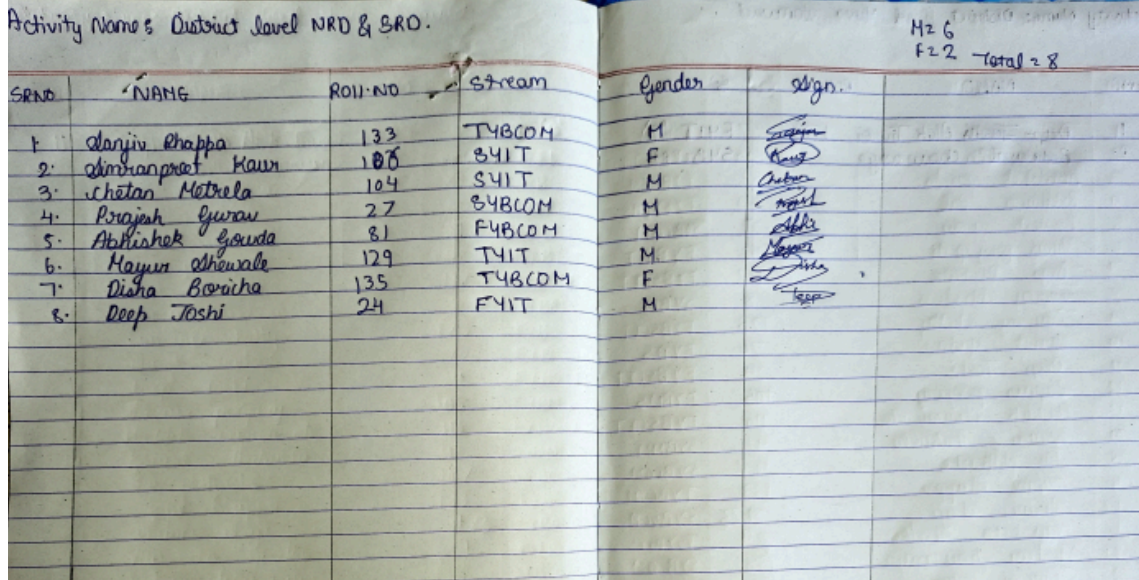 Activity Name: District level NRD & SRD.
M = 6
F = 2 Total = 8
SRNO NAME ROll.NO Stream Gender Sign.
1. Sanjiv Thappa 133 TYBCOM M
2. Simranpreet Kaur SYIT F Kaur
3. Chetan Metrela 104 SYIT M Chetan
4. Prajesh Gurav 27 SYBCOM M
5. Abhishek Gowda 81 FYBCOM M Abhi
6. Mayur Shewale 129 TYIT M. Mayur
7. Disha Boricha 135 TYBCOM F Disha
8. Deep Joshi 24 FYIT M Deep